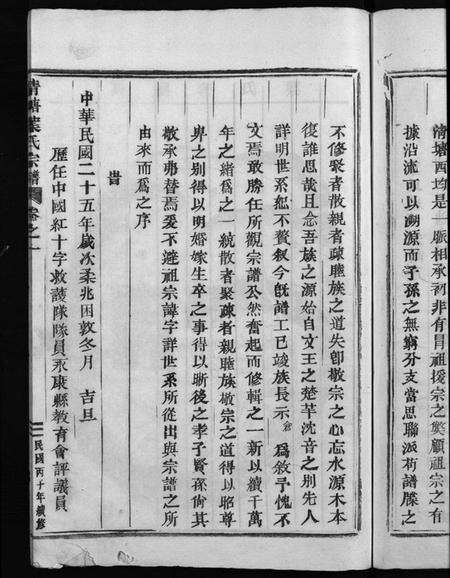 清塘西均是一脈相承初非有冒祖援宗之獘顧祖宗之有
據沿流可以溯源而子孫之無窮分支當思聯派茍譜牒之
不修聚者散親者疎睦族之道失卽敬宗之心忘水源木本
復誰思哉且念吾族之源始自文王之楚華沈音之別先人
詳明世系恕不贅叙今旣譜工已竣族長示倉爲敘予愧不
文焉敢勝任所觀宗譜公然奮起而修輯之一新以續千萬
年之緒爲之一統散者聚疎者親睦族敬宗之道得以昭尊
卑之别得以明婚嫁生卒之事得以晰後之孝子賢孫尙其
敬承弗替焉爰不避祖宗諱字詳世系所從出與宗譜之所
由來而爲之序
旹
中華民國二十五年歲次柔兆困敦冬月 吉旦
歷任中國紅十字救護隊隊員永康縣教育會評議員
清塘葉氏宗譜 卷之一
民國丙子年續修